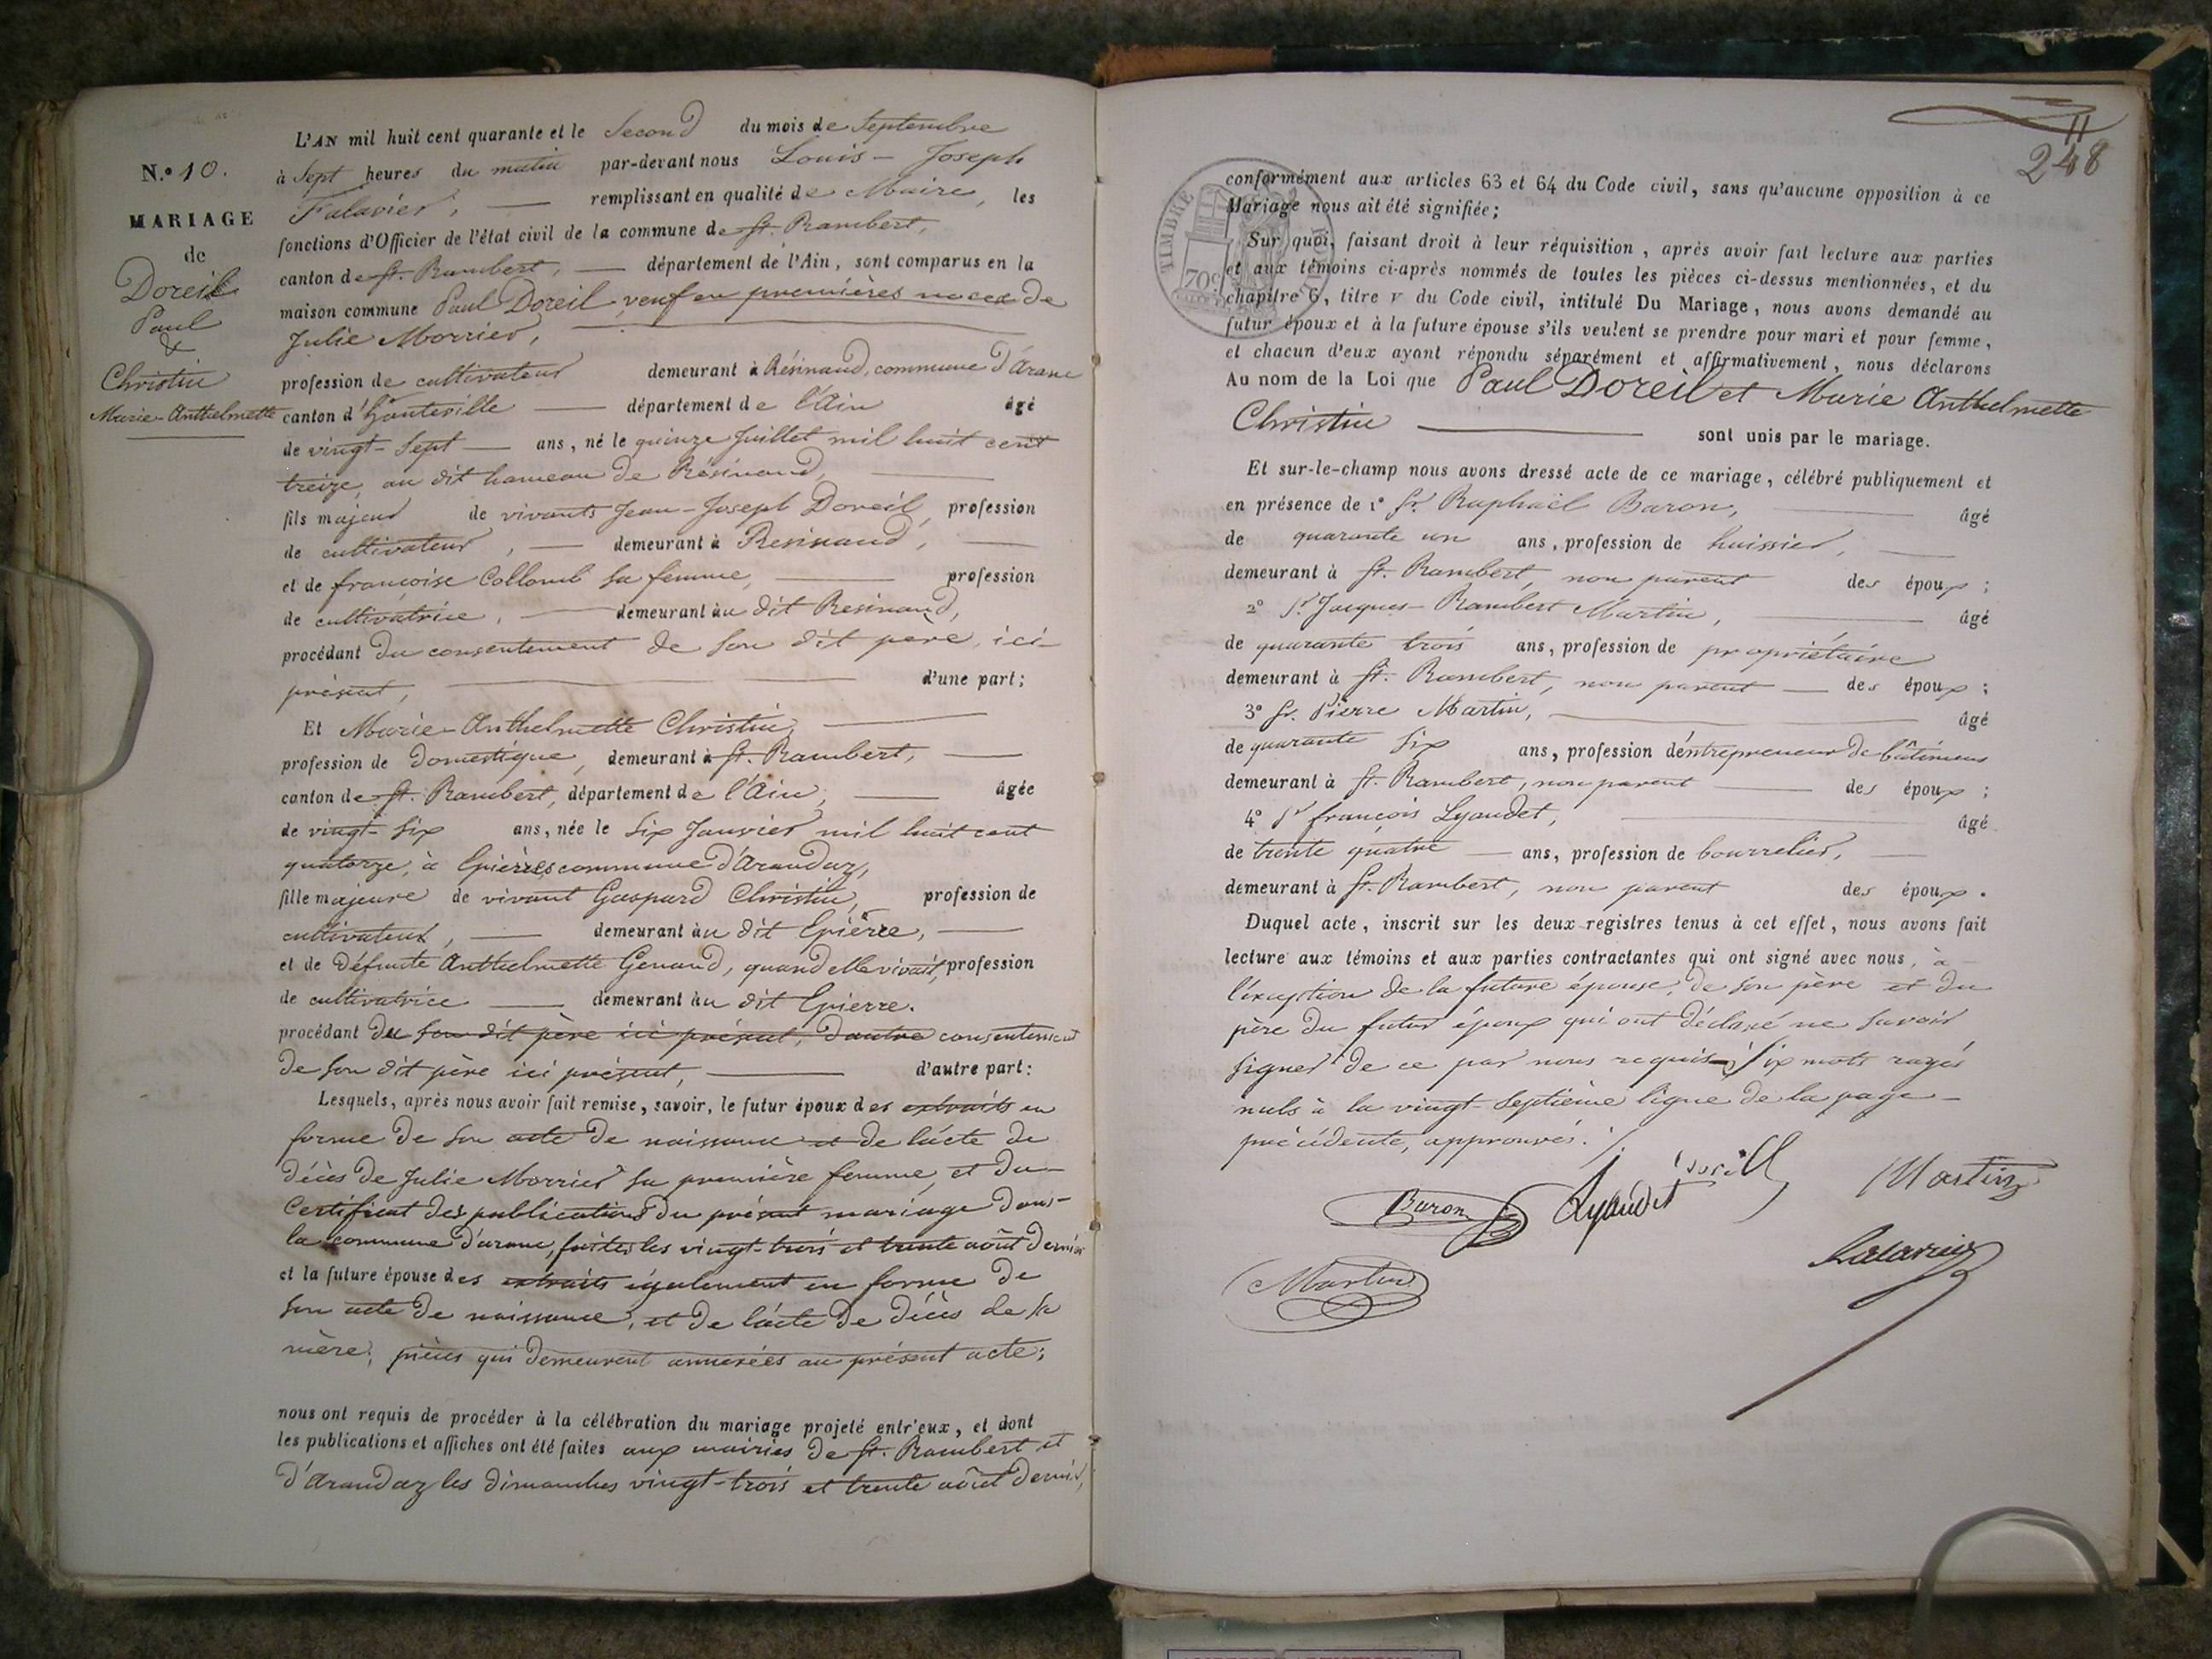 N.º 10.
MARIAGE
de
Doreil
Paul
&
Christin
Marie-Anthelmette
L'AN mil huit cent quarante et le Second du mois de Septembre
à Sept heures du matin par-devant nous Louis-Joseph
Falavier, remplissant en qualité de Maire, les
fonctions d'Officier de l'état civil de la commune de St. Rambert,
canton de St. Rambert, département de l'Ain, sont comparus en la
maison commune Paul Doreil, veuf en premières noces de
Julie Morrier,
profession de cultivateur demeurant à Résinaud, commune d'Arane
canton d'hauteville département de l'Ain âgé
de vingt-Sept ans, né le quinze Juillet mil huit cent
treize, au dit hameau de Résinaud,
fils majeur de vivants Jean-Joseph Doreil, profession
de cultivateur, demeurant à Resinaud,
et de françoise Collomb sa femme, profession
de cultivatrice, demeurant au dit Resinaud,
procédant du consentement de son dit père, ici-
présent, d'une part;
Et Marie-Anthelmette Christin,
profession de Domestique, demeurant à St. Rambert,
canton de St. Rambert, département de l'Ain, âgée
de vingt-six ans, née le Six Janvier mil huit cent
quatorze, à Epierres commune d'Arandaz,
fille majeure de vivant Gaspard Christin, profession de
cultivateur, demeurant au dit Epierre,
et de Défunte Anthelmette Genaud, quand elle vivait, profession
de cultivatrice demeurant au dit Epierre.
procédant du son dit père ici présent, d'autre consentement
de son dit père ici présent, d'autre part:
Lesquels, après nous avoir fait remise, savoir, le futur époux des extraits en
forme de son acte de naissance et de l'acte de
décès de Julie Morrier sa première femme, et du
Certificat des publications du présent mariage dans
la commune d'arane, faites les vingt-trois et trente août dernier
et la future épouse des extraits également en forme de
son acte de naissance, et de l'acte de décès de sa
mère; pièces qui demeurent annexées au présent acte;
nous ont requis de procéder à la célébration du mariage projeté entr'eux, et dont
les publications et affiches ont été faites aux mairies de St. Rambert et
d'Arandaz les dimanches vingt-trois et trente août dernier,
11
248
TIMBRE ROYAL
70c
conformément aux articles 63 et 64 du Code civil, sans qu'aucune opposition à ce
Mariage nous ait été signifiée;
Sur quoi, faisant droit à leur réquisition, après avoir fait lecture aux parties
et aux témoins ci-après nommés de toutes les pièces ci-dessus mentionnées, et du
chapitre 6, titre v du Code civil, intitulé Du Mariage, nous avons demandé au
futur époux et à la future épouse s'ils veulent se prendre pour mari et pour femme,
et chacun d'eux ayant répondu séparément et affirmativement, nous déclarons
Au nom de la Loi que Paul Doreil et Marie Anthelmette
Christin sont unis par le mariage.
Et sur-le-champ nous avons dressé acte de ce mariage, célébré publiquement et
en présence de 1º Sr. Raphaël Baron, âgé
de quarante un ans, profession de huissier,
demeurant à St. Rambert, non parent des époux;
2º Sr Jacques-Rambert Martin, âgé
de quarante trois ans, profession de propriétaire
demeurant à St. Rambert, non parent des époux;
3º Sr. Pierre Martin, âgé
de quarante Six ans, profession d'entrepreneur de bâtimens
demeurant à St. Rambert, non parent des époux;
4º Sr françois Lyaudet, âgé
de trente quatre ans, profession de bourrelier,
demeurant à St. Rambert, non parent des époux.
Duquel acte, inscrit sur les deux registres tenus à cet effet, nous avons fait
lecture aux témoins et aux parties contractantes qui ont signé avec nous, à
l'exception de la future épouse, de son père et du
père du futur époux qui ont déclaré ne savoir
signer de ce par nous requis; Six mots rayés
nuls à la vingt-septième ligne de la page
précédente, approuvés.
Doreill
Baron
Lyaudet
Martin
Falavier
Martin